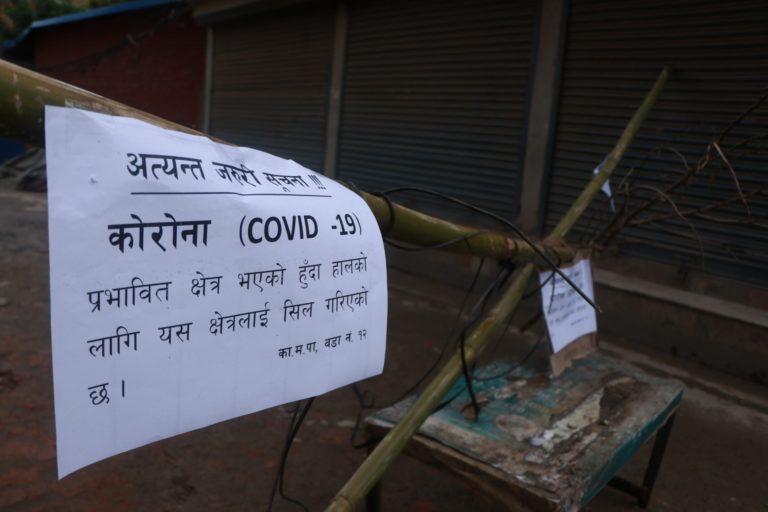 अत्यन्त जरुरी सूचना !!!
कोरोना (COVID -19)
प्रभावित क्षेत्र भएको हुँदा हालको
लागि यस क्षेत्रलाई सिल गरिएको
छ ।
का.म.पा, वडा नं. १२